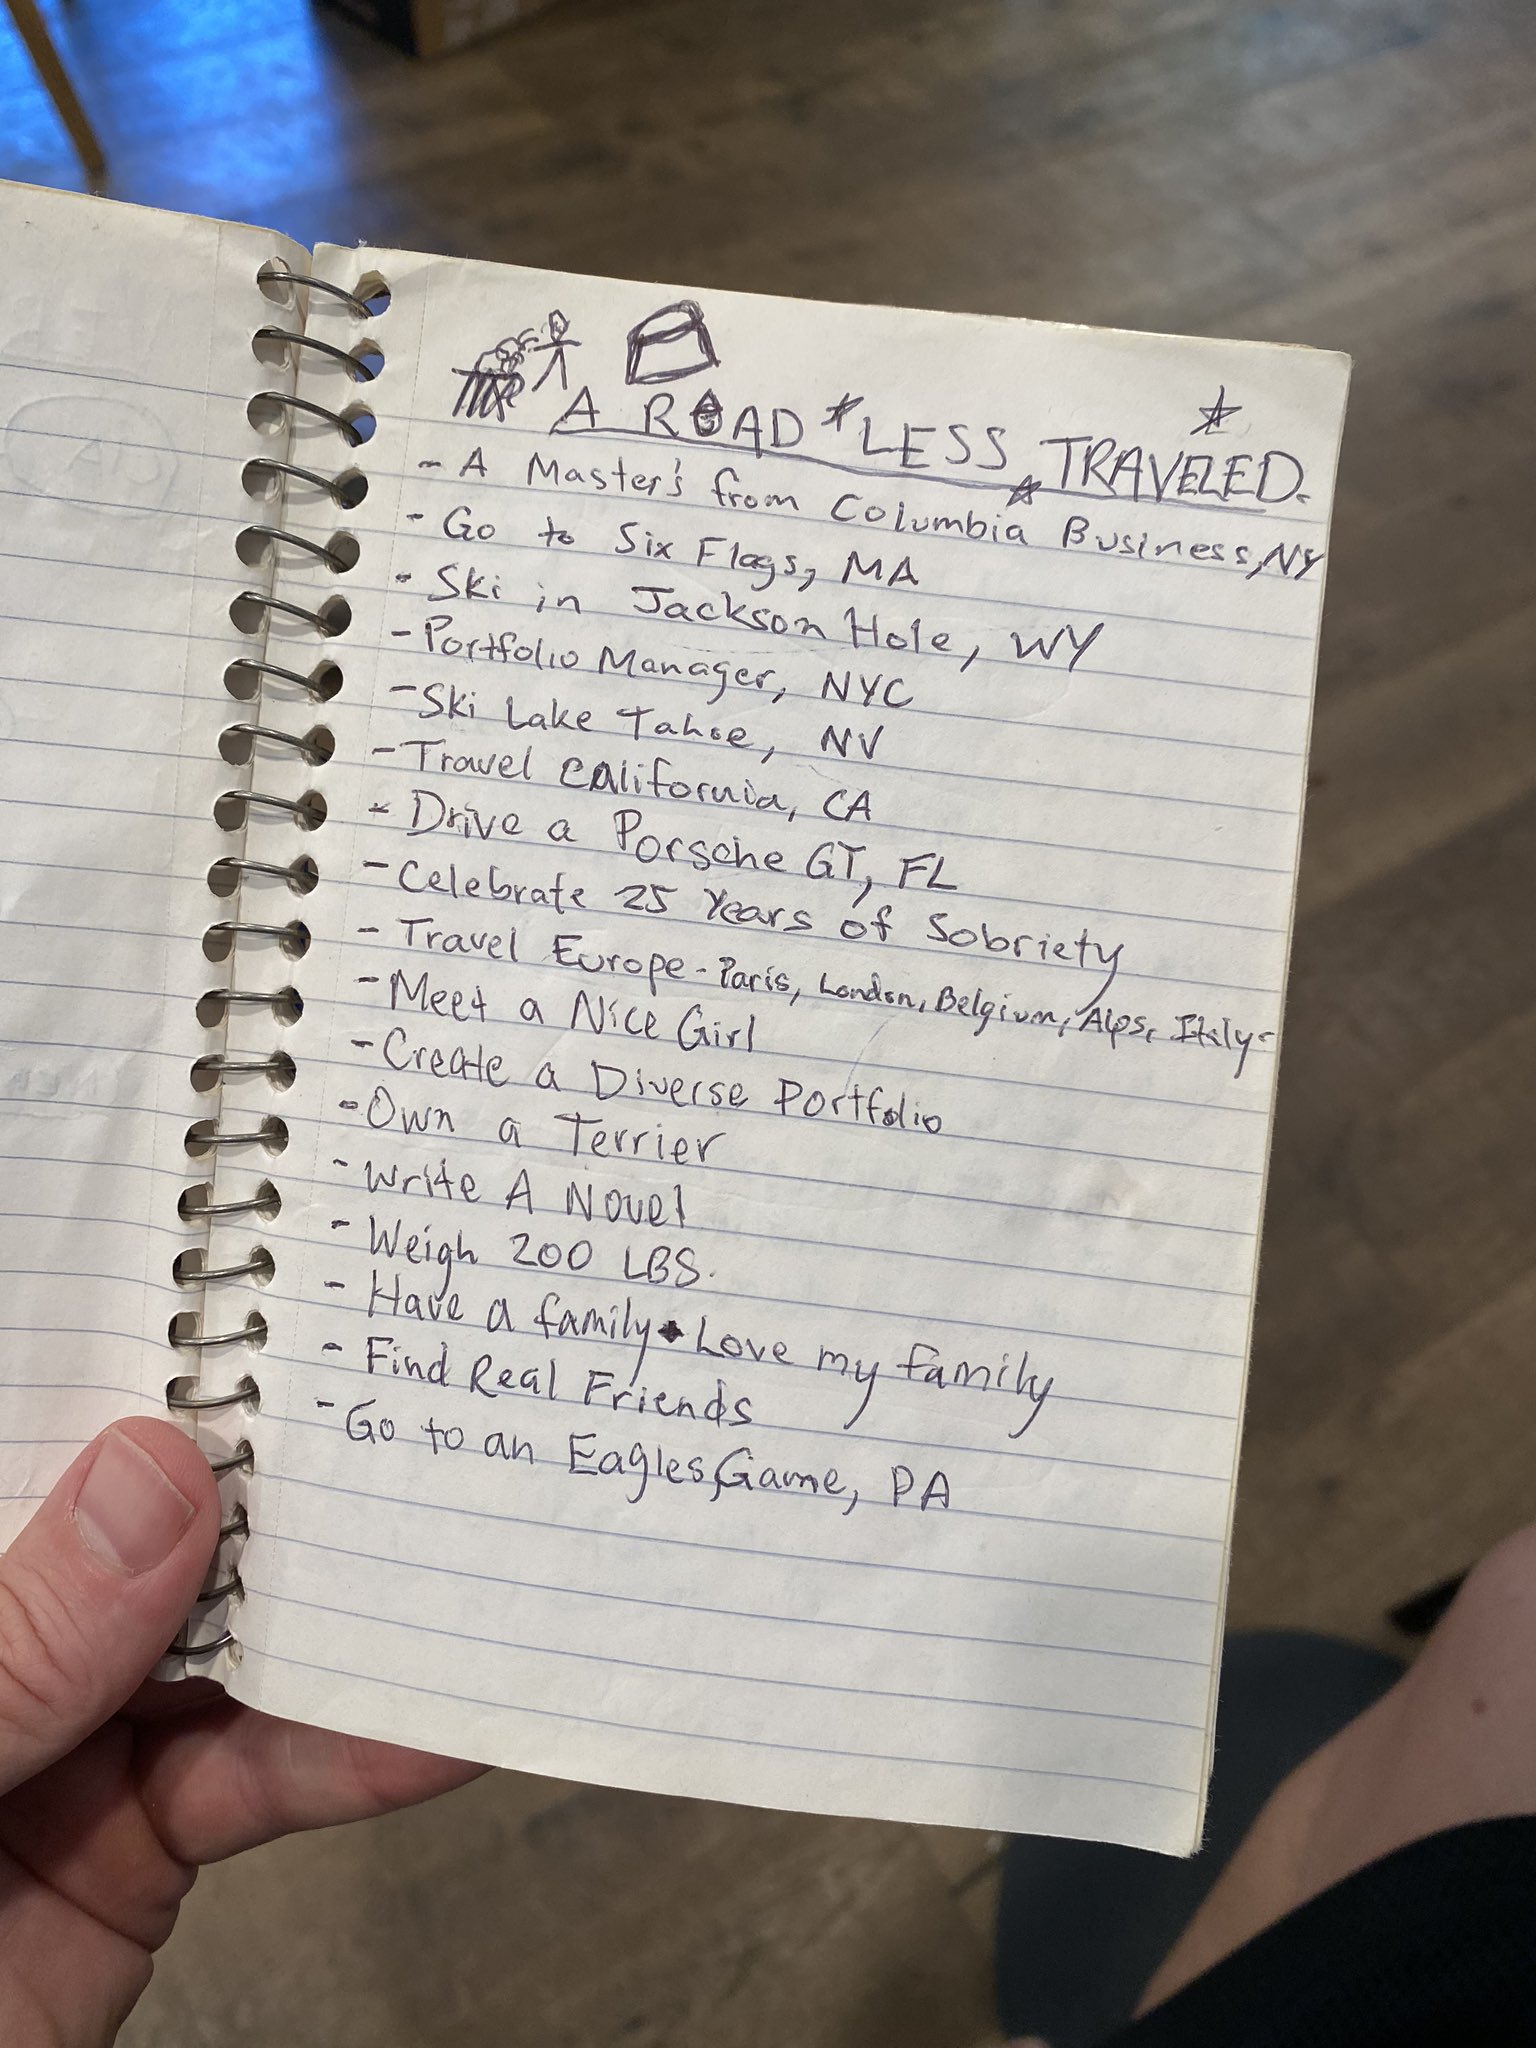 A ROAD LESS TRAVELED.
- A Master's from Columbia Business, NY
- Go to Six Flags, MA
- Ski in Jackson Hole, WY
- Portfolio Manager, NYC
- Ski Lake Tahoe, NV
- Travel California, CA
- Drive a Porsche GT, FL
- Celebrate 25 Years of Sobriety
- Travel Europe - Paris, London, Belgium, Alps, Italy -
- Meet a Nice Girl
- Create a Diverse Portfolio
- Own a Terrier
- Write A Novel
- Weigh 200 LBS.
- Have a family • Love my family
- Find Real Friends
- Go to an Eagles Game, PA